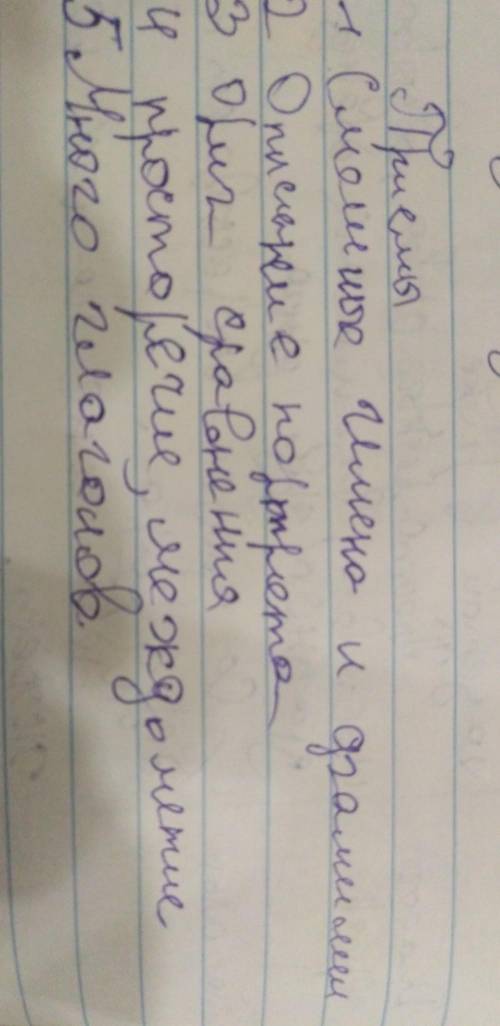 Приемы
1 Смешные имена и фамилии
2 Описание портрета
3 Ориг сравнения
4 просторечие, междометие
5 Много глаголов.